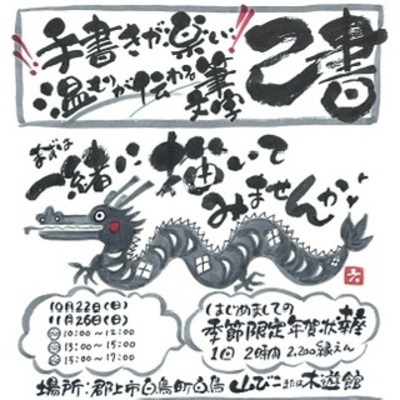 !! 手書きが楽しい!!
温もりが伝わる筆文字
己書
まずは
一緒に描いて
みませんか
10月22日(日)
11月26日(日)
10:00～12:00
13:00～15:00
15:00～17:00
はじめましての
季節限定年賀状幸座
1回 2時間 2,200縁えん
場所:郡上市白鳥町白鳥 山びこ または 木遊館